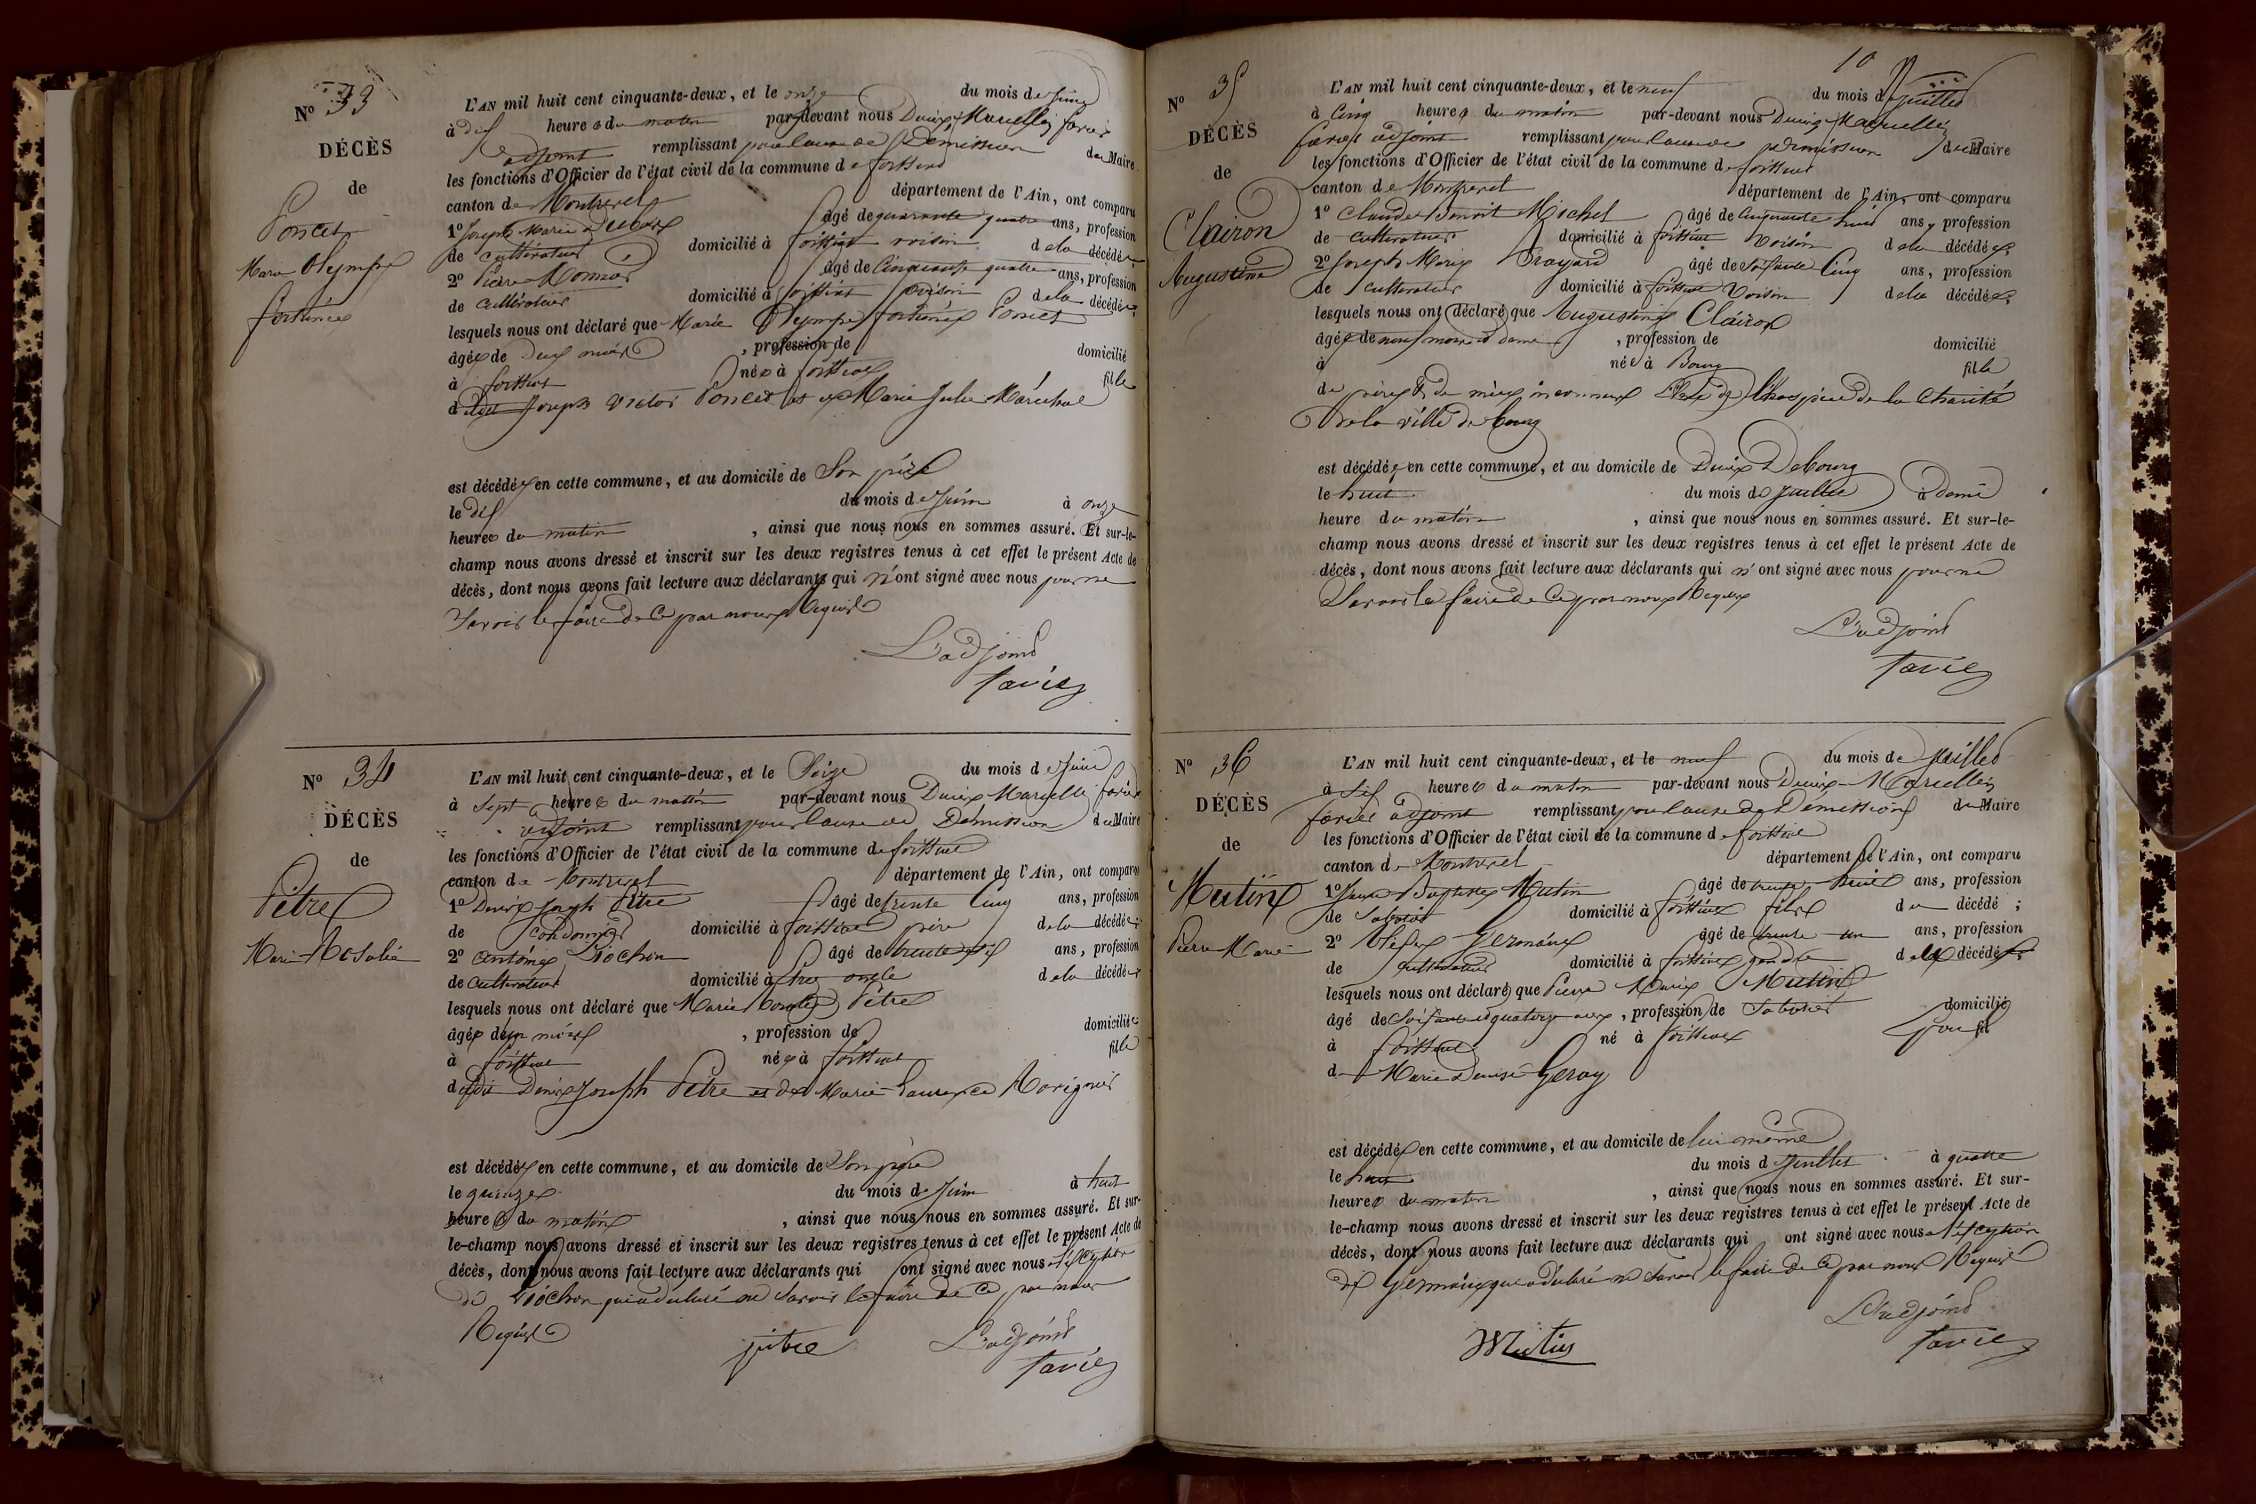 N° 33
DÉCÈS
de
Poncet
Marie Olympe
fortunée
L'AN mil huit cent cinquante-deux, et le onze du mois de juin
à dix heures du matin par-devant nous Denix Marcellin favier
adjoint remplissant pour cause de Démission du Maire
les fonctions d'Officier de l'état civil de la commune de foissiat
canton de Montrevel département de l'Ain, ont comparu
1° Joseph Marie âgé de quarante quatre ans, profession
de cultivateur domicilié à foissiat voisin de la décédée
2° Pierre Monnier âgé de Cinquante quatre ans, profession
de cultivateur domicilié à foissiat voisin de la décédée;
lesquels nous ont déclaré que Marie Olympe fortunée Poncet
âgée de deux mois , profession de domicilié
à foissiat née à foissiat fille
dudit Joseph Victor Poncet et de Marie Julie Maréchal
est décédée en cette commune, et au domicile de Son père
le dix du mois de Juin à onze
heures du matin , ainsi que nous nous en sommes assuré. Et sur-le-
champ nous avons dressé et inscrit sur les deux registres tenus à cet effet le présent Acte de
décès, dont nous avons fait lecture aux déclarants qui n'ont signé avec nous pour ne
Savoir le faire de ce par nous Requis
L'adjoint
favier
N° 34
DÉCÈS
de
Pêtre
Marie Rosalie
L'AN mil huit cent cinquante-deux, et le Seize du mois de Juin
à Sept heures du matin par-devant nous Denix Marcellin favier
adjoint remplissant pour cause de Démission du Maire
les fonctions d'Officier de l'état civil de la commune de foissiat
canton de Montrevel département de l'Ain, ont comparu
1° Denix Joseph Pêtre âgé de trente Cinq ans, profession
de Cordonnier domicilié à foissiat père de la décédée;
2° Antoine Piochon âgé de trente six ans, profession
de cultivateur domicilié à oncle de la décédée
lesquels nous ont déclaré que Marie Rosalie Pêtre
âgée d'un mois , profession de domiciliée
à foissiat née à foissiat fille
dudit Denix Joseph Pêtre et de Marie Laurence Morignier
est décédée en cette commune, et au domicile de Son père
le quinze du mois de Juin à huit
heures du matin , ainsi que nous nous en sommes assuré. Et sur-
le-champ nous avons dressé et inscrit sur les deux registres tenus à cet effet le présent Acte de
décès, dont nous avons fait lecture aux déclarants qui ont signé avec nous à l'exception
de Piochon qui a déclaré ne Savoir le faire de ce par nous
Requis
pètre
L'adjoint
favier
10
N° 35
DÉCÈS
de
Clairon
Augustine
L'AN mil huit cent cinquante-deux, et le neuf du mois de juillet
à Cinq heures du matin par-devant nous Denix Marcellin
favier adjoint remplissant pour cause de Démission du Maire
les fonctions d'Officier de l'état civil de la commune de foissiat
canton de Montrevel département de l'Ain, ont comparu
1° Claude Benoit Michel âgé de Cinquante huit ans, profession
de cultivateur domicilié à foissiat voisin de la décédée;
2° Joseph Marie Brayard âgé de Soixante Cinq ans, profession
de cultivateur domicilié à foissiat Voisin de la décédée;
lesquels nous ont déclaré que Augustine Clairon
âgée de neuf mois et demi , profession de domicilié
à née à Bourg fille
de père et de mère inconnus Elève de l'hospice de la Charité
De la ville de bourg
est décédée en cette commune, et au domicile de Denix Debourg
le huit du mois de Juillet à demi
heure du matin , ainsi que nous nous en sommes assuré. Et sur-le-
champ nous avons dressé et inscrit sur les deux registres tenus à cet effet le présent Acte de
décès, dont nous avons fait lecture aux déclarants qui n'ont signé avec nous pour ne
Savoir le faire de ce par nous Requis
L'adjoint
favier
N° 36
DÉCÈS
de
Mutin
Pierre Marie
L'AN mil huit cent cinquante-deux, et le neuf du mois de Juillet
à Six heures du matin par-devant nous Denix Marcellin
favier adjoint remplissant pour cause de Démission du Maire
les fonctions d'Officier de l'état civil de la commune de foissiat
canton de Montrevel département de l'Ain, ont comparu
1° Jean Baptiste Mutin âgé de trente huit ans, profession
de Sabotier domicilié à foissiat fils du décédé ;
2° Germain âgé de trente un ans, profession
de cultivateur domicilié à foissiat gendre du décédé
lesquels nous ont déclaré que Pierre Marie Mutin
âgé de Soixante quatorze ans, profession de Sabotier domicilié
à foissiat né à foissiat
de Marie Denise Geray
est décédé en cette commune, et au domicile de lui même
le huit du mois de Juillet à quatre
heures du matin , ainsi que nous nous en sommes assuré. Et sur-
le-champ nous avons dressé et inscrit sur les deux registres tenus à cet effet le présent Acte de
décès, dont nous avons fait lecture aux déclarants qui ont signé avec nous à l'exception
de Germain qui a déclaré ne Savoir le faire de ce par nous Requis
L'adjoint
favier
Mutin